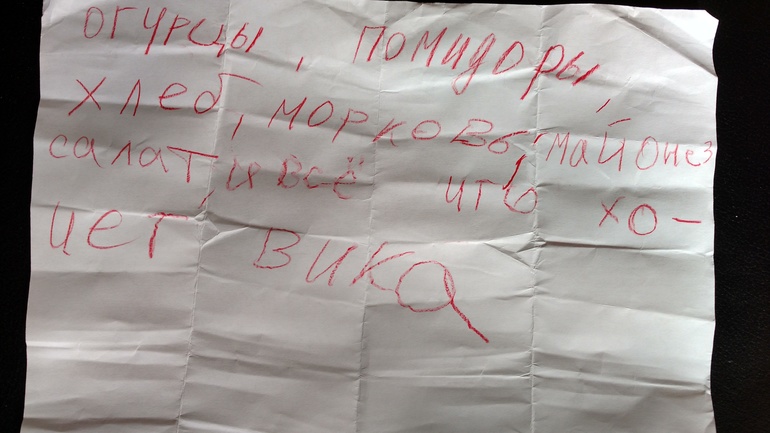 огурцы, помидоры,
хлеб, морковь, майонез
салат, и всё что хо-
цет вика